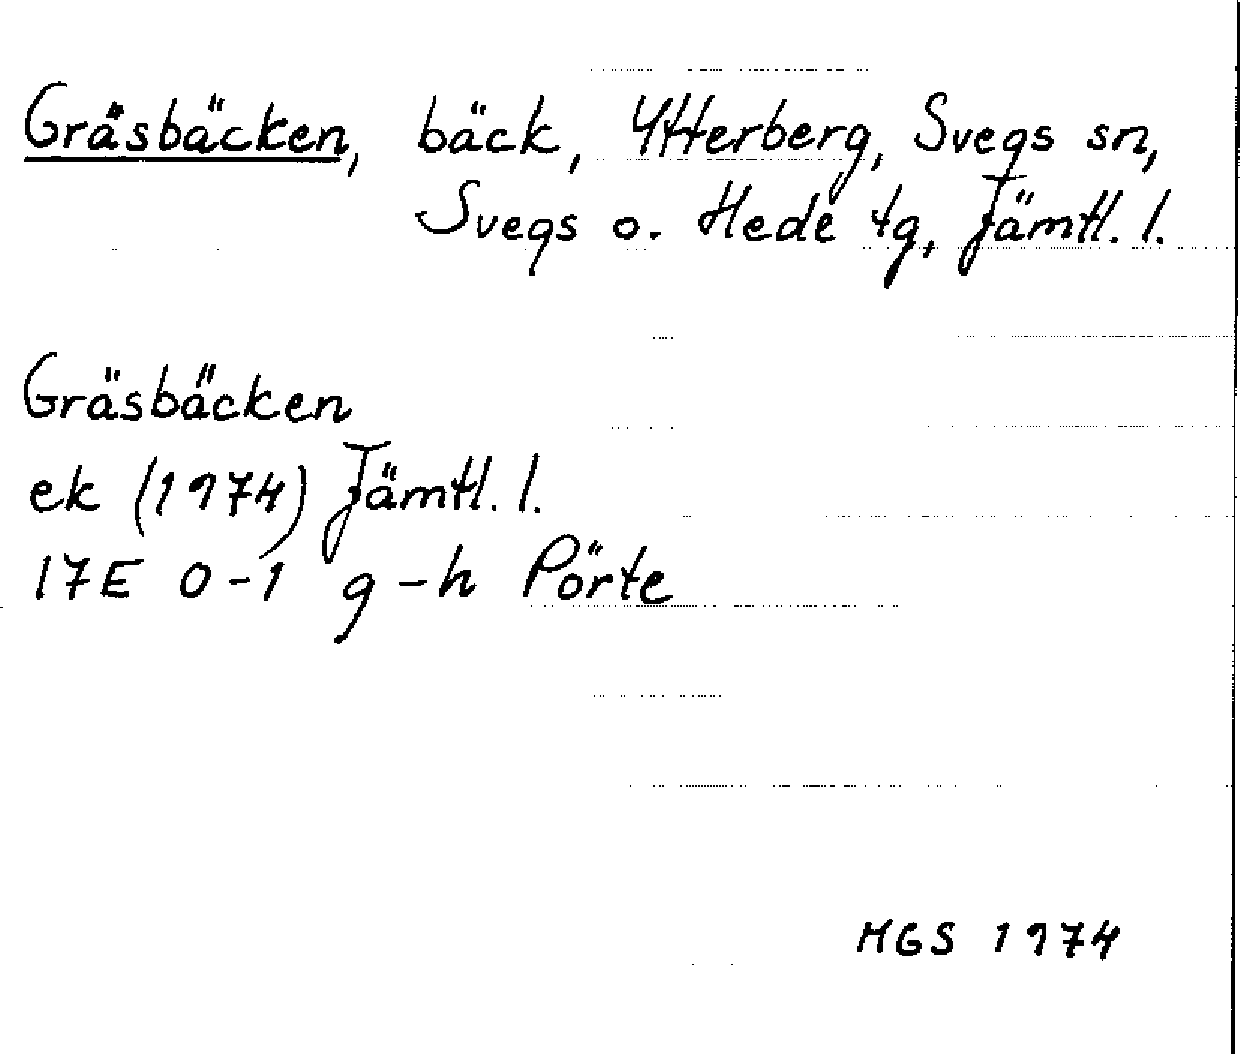 Gräsbäcken, bäck, Ytterberg, Svegs sn,
Svegs o. Hede tg, Jämtl. l.
Gräsbäcken
ek (1974) Jämtl. l.
17E 0-1 g-h Pörte
MGS 1974